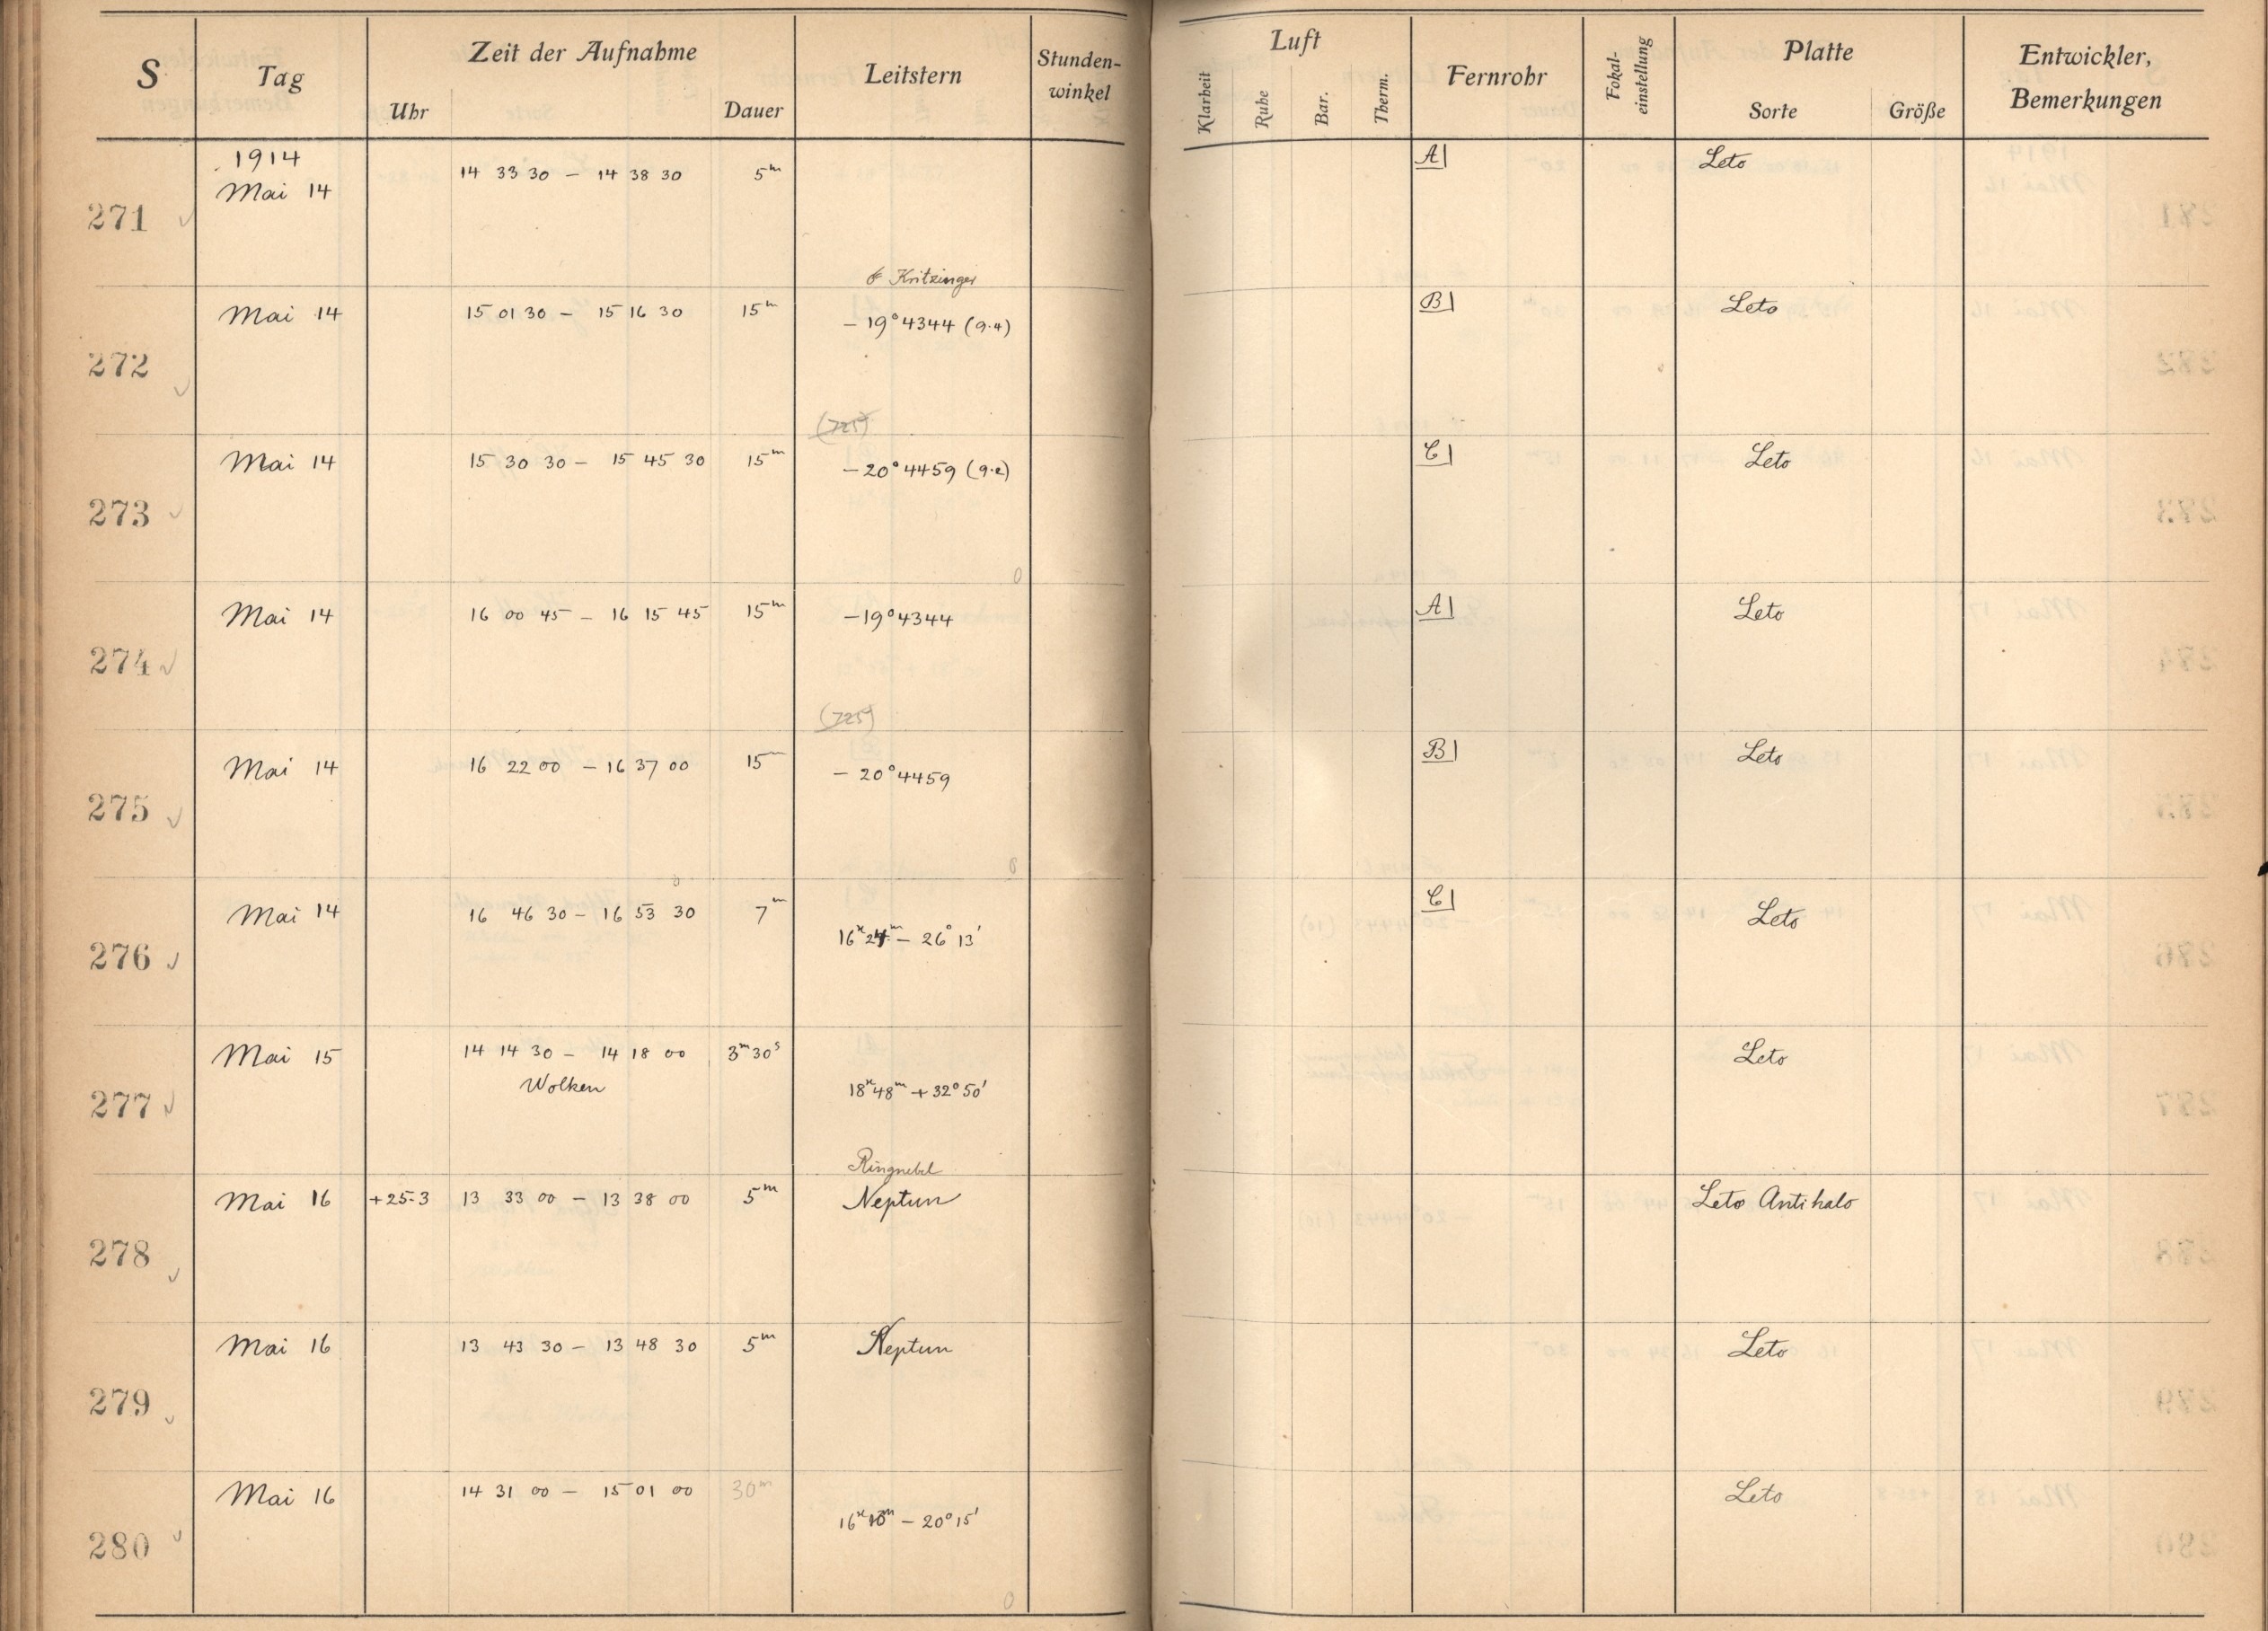 S Tag Zeit der Aufnahme Leitstern Stunden-winkel Luft Fernrohr Fokal-einstellung Platte Entwickler, Bemerkungen
Uhr Dauer Klarheit Ruhe Bar. Therm. Sorte Größe
1914
271 Mai 14 14 33 30 – 14 38 30 5m A| Leto
Kritzinger
272 Mai 14 15 01 30 – 15 16 30 15m – 19° 4344 (9.4) B| Leto
(725)
273 Mai 14 15 30 30 – 15 45 30 15m – 20° 4459 (9.2) C| Leto
274 Mai 14 16 00 45 – 16 15 45 15m – 19° 4344 A| Leto
(725)
275 Mai 14 16 22 00 – 16 37 00 15m – 20° 4459 B| Leto
276 Mai 14 16 46 30 – 16 53 30 7m 16h 24m – 26° 13' C| Leto
277 Mai 15 14 14 30 – 14 18 00 3m 30s Leto
Wolken 18h 48m + 32° 50'
Ringnebel
278 Mai 16 +25.3 13 33 00 – 13 38 00 5m Neptun Leto Antihalo
279 Mai 16 13 43 30 – 13 48 30 5m Neptun Leto
280 Mai 16 14 31 00 – 15 01 00 30m Leto
16h 10m – 20° 15'